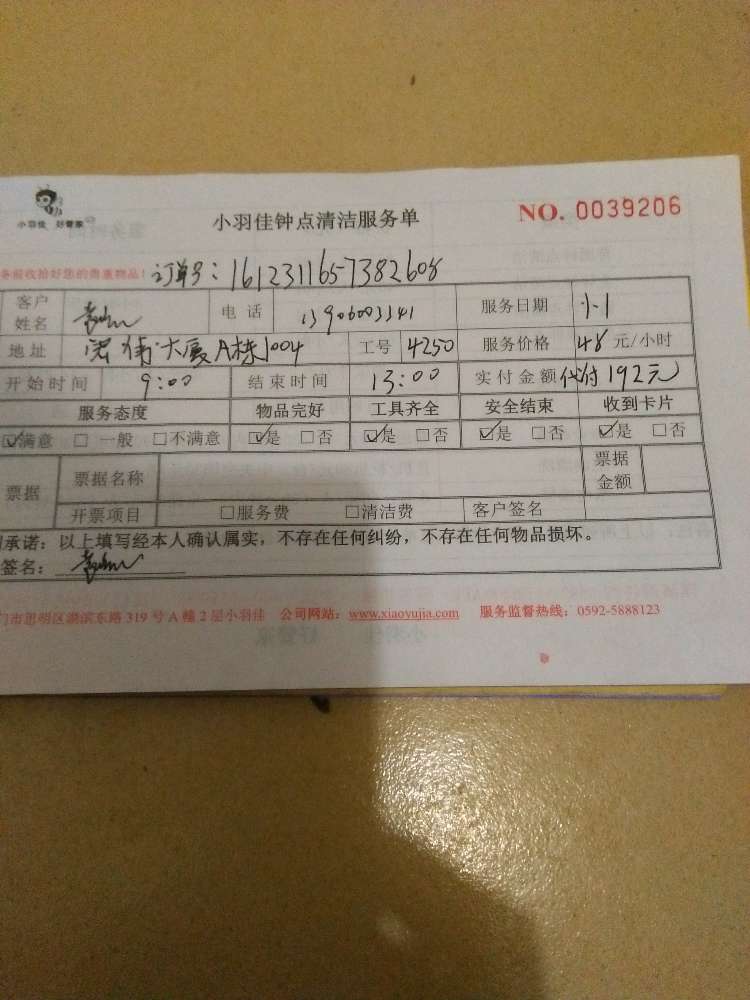 小羽佳 好管家
小羽佳钟点清洁服务单
NO. 0039206
务前收拾好您的贵重物品！ 订单号：1612311657382608
客户姓名 电话 13906003341 服务日期 1-1
地址 大厦A栋1004 工号 4250 服务价格 48 元/小时
开始时间 9:00 结束时间 13:00 实付金额 代付192元
服务态度 物品完好 工具齐全 安全结束 收到卡片
☑满意 □一般 □不满意 ☑是 □否 ☑是 □否 ☑是 □否 ☑是 □否
票据 票据名称 票据金额
开票项目 □服务费 □清洁费 客户签名
承诺：以上填写经本人确认属实，不存在任何纠纷，不存在任何物品损坏。
签名：
门市思明区湖滨东路 319 号 A 幢 2 层小羽佳 公司网站：www.xiaoyujia.com 服务监督热线：0592-5888123